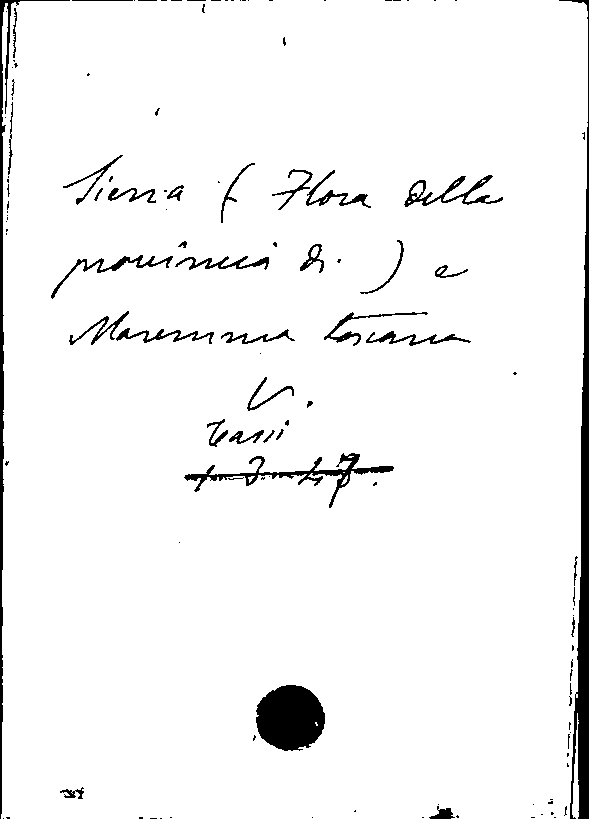 Siena (Flora della
provincia di.) e
Maremma toscana
V.
Tassi